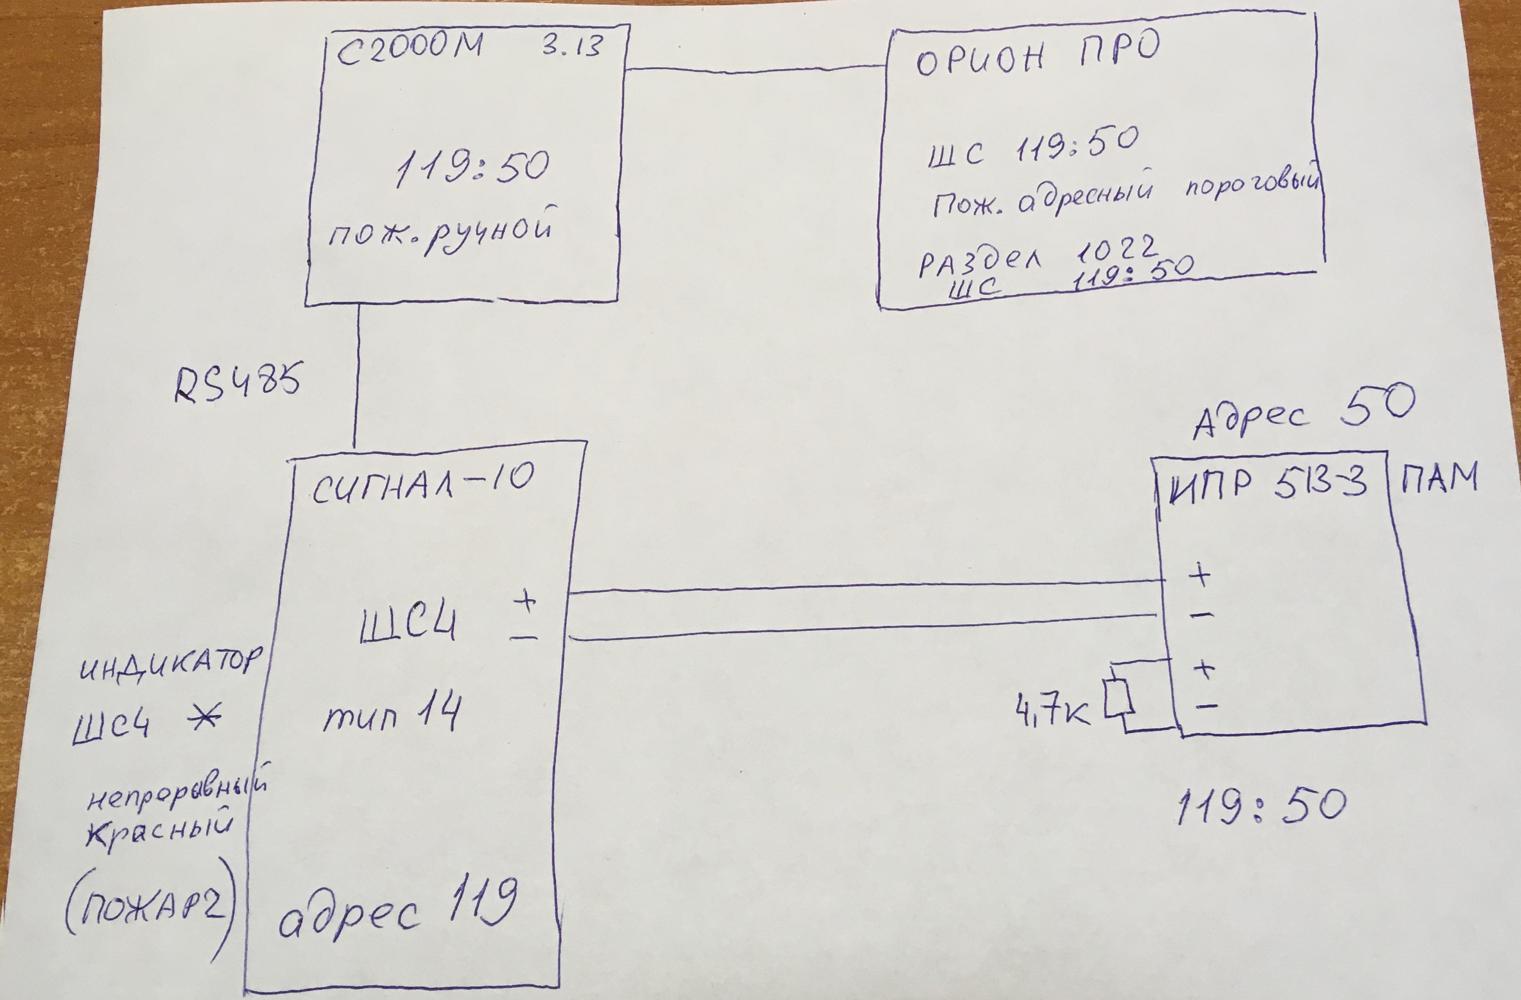 С2000М 3.13
119:50
пож. ручной
ОРИОН ПРО
ШС 119:50
Пож. адресный пороговый
РАЗДЕЛ 1022
ШС 119:50
RS485
СИГНАЛ-10
ШС4 + −
тип 14
адрес 119
ИНДИКАТОР
ШС4 *
непрорывный
Красный
(ПОЖАР2)
Адрес 50
ИПР 513-3 ПАМ
+
−
+
−
4,7к
119:50